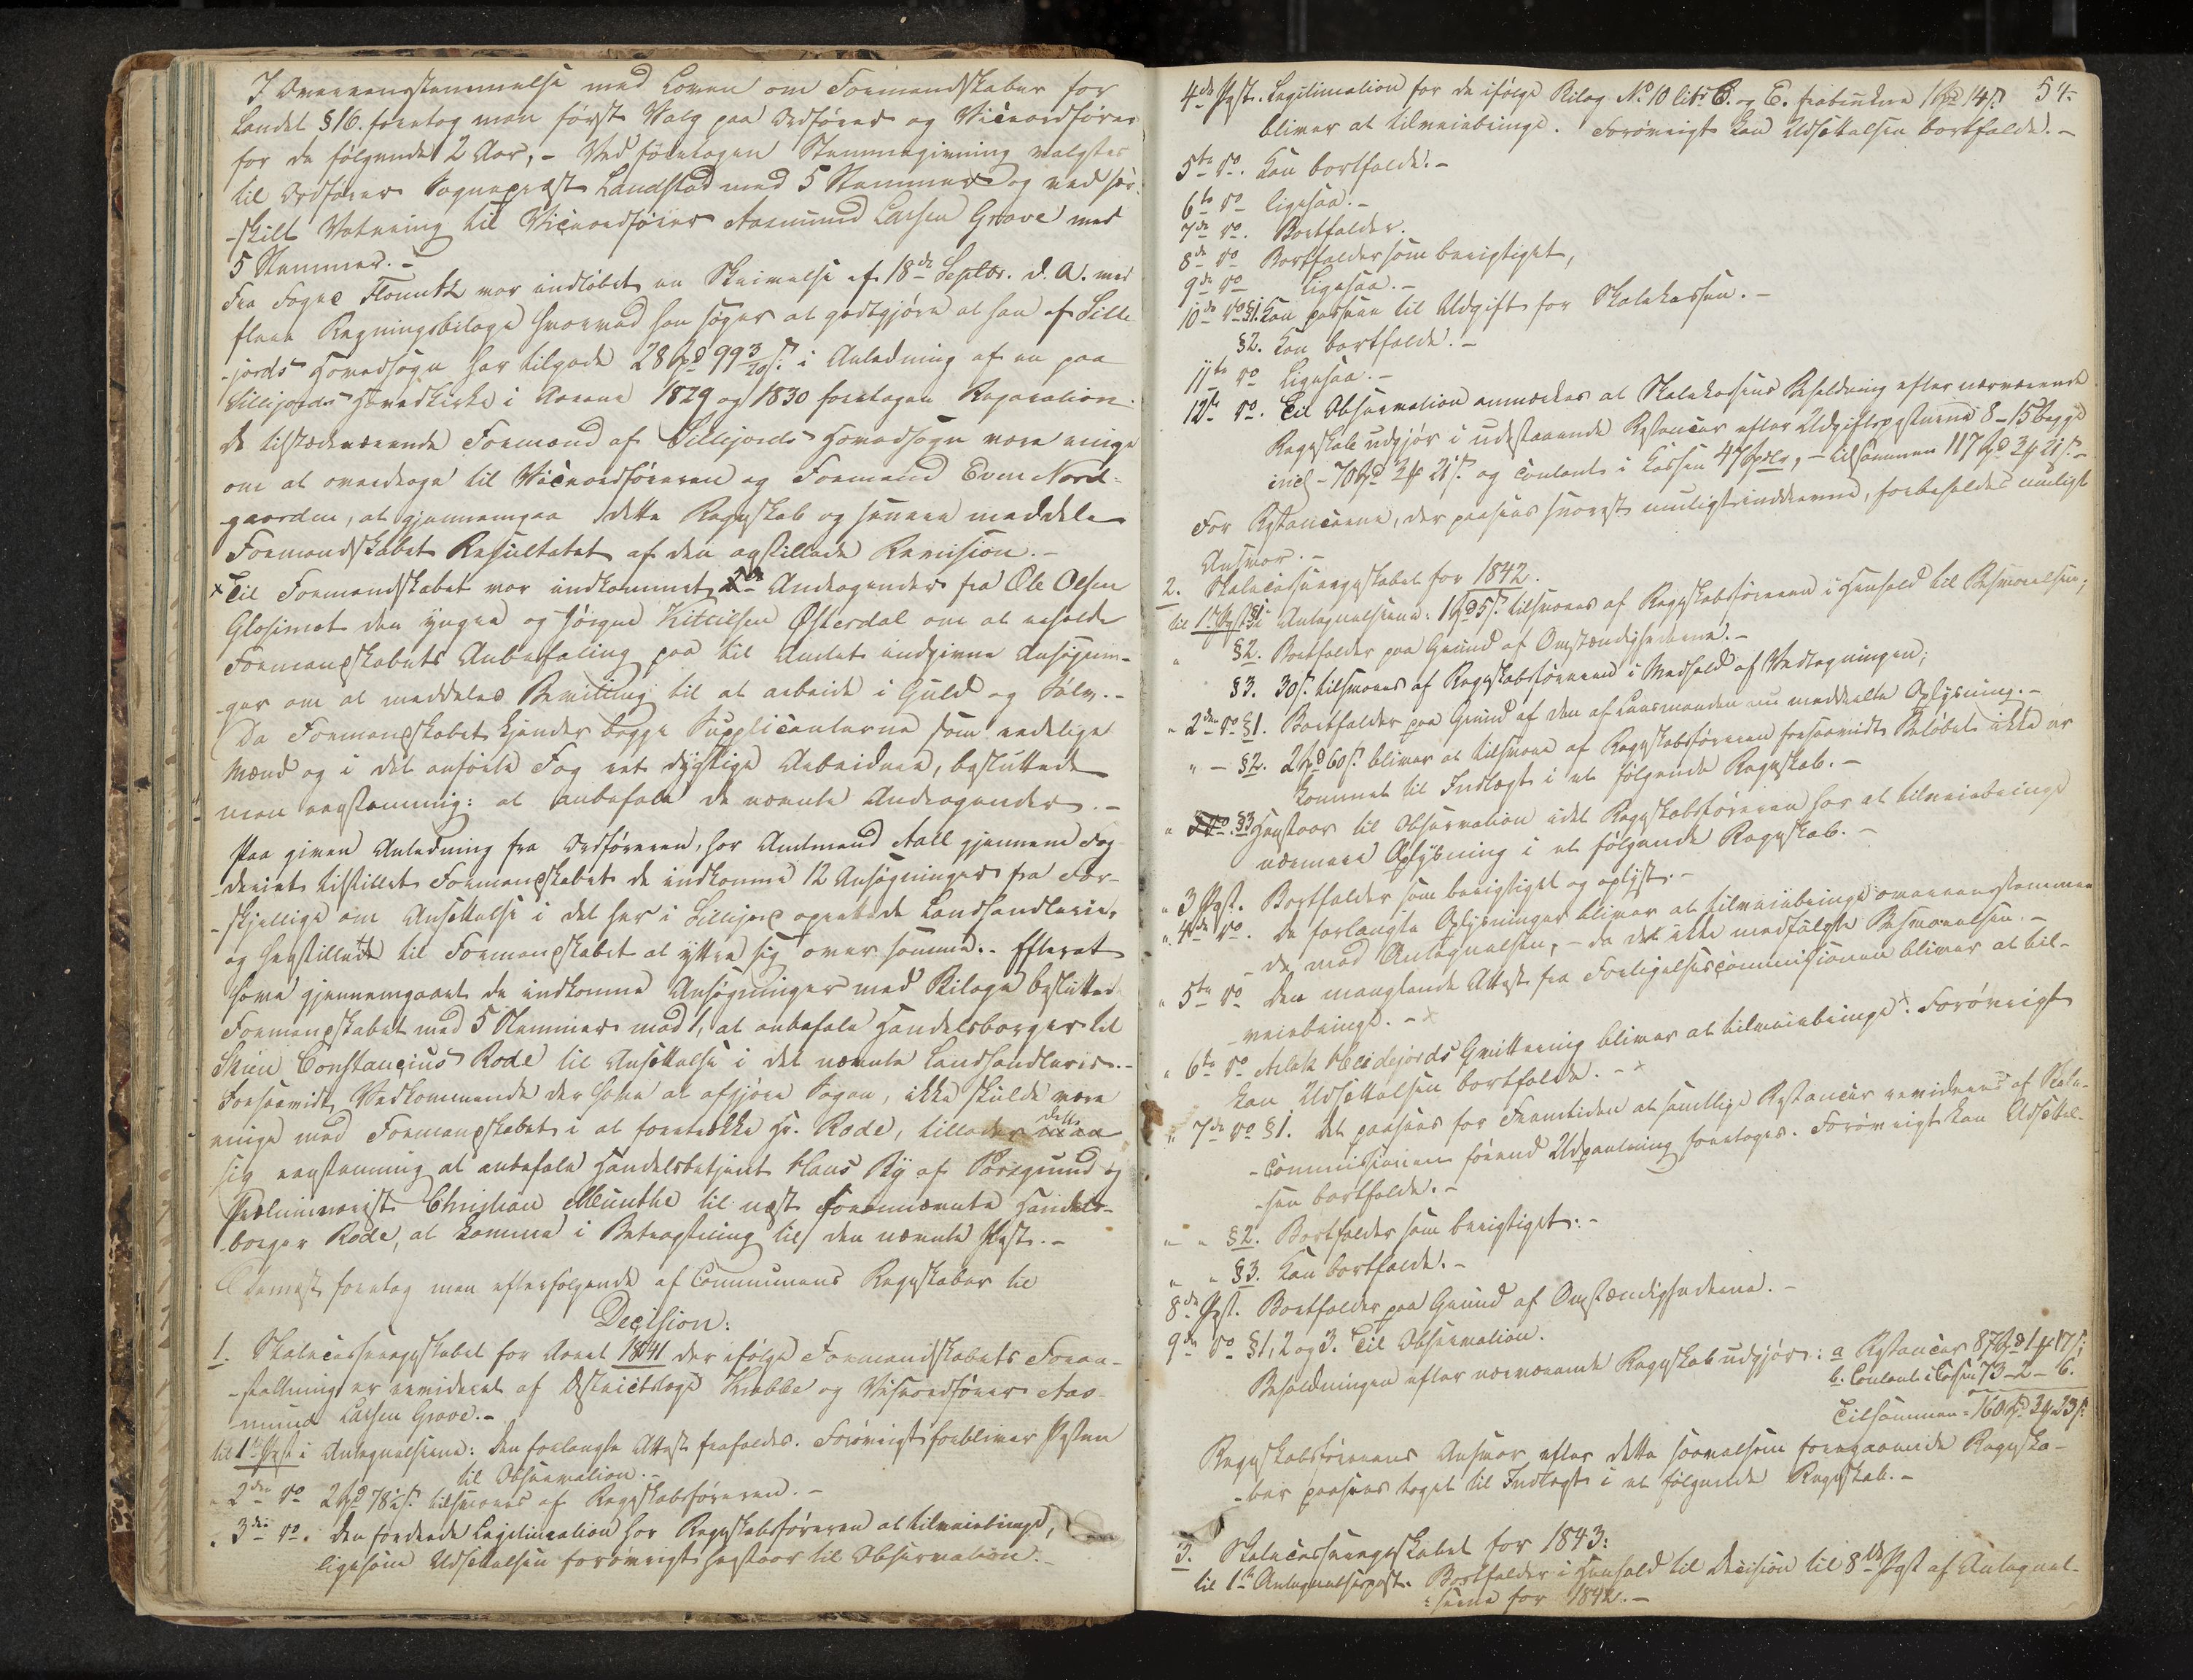 I Overeensstemmelse med Loven om Formandskaber for
Landet §16. foretog man først Valg paa Ordfører og Viceordfører
for de følgende 2 Aar, - Ved foretagen Stemmegivning valgtes
til Ordfører Sognepræst Landstad med 5 Stemmer og ved sær-
-skilt Votering til Viceordfører Aasmund Larsen Grave med
5 Stemmer. -
Fra Foged Florentz var indløbet en Skrivelse af 18de Septbr. d. A. med
flere Regningsbilage hvorved han søger at godtgjøre at han af Sille
-jords Hovedsogn har tilgode 28 Spd 99 3/20 s. i Anledning af en paa
Sillejords Hovedkirke i Aarene 1829 og 1830 foretagen Reparation.
De tilstedeværende Formænd af Sillejords Hovedsogn vare enige
om at overdrage til Viceordføreren og Formand Even Nord-
gaarden, at gjennemgaa dette Regnskab og senere meddele
Formandskabet Resultatet af den anstillede Revision. -
x Til Formandskabet var indkommet 2de Andragender fra Ole Olsen
Glosimot den yngre og Jørgen Kittilsen Østerdal om at erholde
Formandskabets Anbefaling paa til Amtet indgivne Ansøgnin-
-ger om at meddeles Bevilling til at arbeide i Guld og Sølv. -
Da Formandskabet kjender begge Supplicanterne som redelige
Mænd og i det anførte Fag ret dygtige Arbeidere, besluttede
man eenstemmig: at anbefale de nævnte Andragender. -
Paa given Anledning fra Ordføreren, har Amtmand Aall gjennem Fog-
-deriet tilstillet Formandskabet de indkomne 12 Ansøgninger fra For-
-skjellige om Ansættelse i det her i Sillejord oprettede Landhandlerie,
og henstillede til Formandskabet at yttre sig over samme. - Efterat
have gjennemgaaet de indkomne Ansøgninger med Bilage beslutted
Formandskabet med 5 Stemmer mod 1, at anbefale Handelsborger til
Skien Constancius Rode til Ansættelse i det nævnte Landhandlerie. -
Forsaavidt Vedkommende der have at afgjøre Sagen, ikke skulde være
enige med Formandskabet i at foretrække Hr. Rode, tillader dette
sig eenstemmig at anbefale Handelsbetjent Hans Ry af Porsgrund og
Præliminarist Christian Munthe til næst fornævnte Handels-
borger Rode, at komme i Betragtning til den nævnte Post. -
Dernæst foretog man efterfølgende af Communens Regnskaber til
Decision:
1. Skolecasseregnskabet for Aaret 1841 der ifølge Formandskabets Foran-
-staltning er revideret af Districtslæge Krabbe og Viceordfører Aas-
-mund Larsen Grave. -
til 1ste Post i Antegnelserne: Den forlangte Attest frafaldes. Forøvrigt forbliver Posten
til Observation. -
" 2den do 2 Spd 78½ s. tilsvares af Regnskabsføreren. -
" 3die do. Den fordrede Legitimation har Regnskabsføreren at tilveiebringe,
ligesom Udsættelsen forøvrigt henstaar til Observation. -
54.
4de Post. Legitimation for de ifølge Bilag No 10 litr C. og E. fraberegnede 1 Spd 14 s.
bliver at tilveiebringe. Forøvrigt kan Udsættelsen bortfalde. -
5te do. Kan bortfalde. -
6te do ligesaa. -
7de do. Bortfalder.
8de do Bortfalder som berigtiget,
9de do ligesaa. -
10de do §1. Kan passere til Udgift for Skolekassen. -
§2. Kan bortfalde. -
11te do Ligesaa. -
12te do. Til Observation anmærkes at Skolekassens Beholdning efter nærværende
Regnskab udgjør i udestaaende Restancer efter Udgiftsposterne 8-15 begge
incl - 70 Spd 3 # 21 s. og contant i Kassen 47 Spdlr, - tilsammen 117 Spd 3 # 21 s. -
For Restancerne, der paasees snarest muligt inddrevne, forbeholdes muligt
Ansvar. -
2. Skolecasseregnskabet for 1842.
til 1ste Post §1 i Antegnelserne: 1 Spd 5 s. tilsvares af Regnskabsføreren i Henhold til Besvarelsen;
" §2. Bortfalder paa Grund af Omstændighederne. -
§3. 30 s. tilsvares af Regnskabsføreren i Medhold af Vedtegningen;
" 2den do §1. Bortfalder paa Grund af den af Lensmanden nu meddeelte Oplysning. -
" - §2. 2 Spd 60 s. bliver at tilsvare af Regnskabsføreren forsaavidt Beløbet ikke er
kommet til Indtægt i et følgende Regnskab. -
" §3 Henstaar til Observation idet Regnskabsføreren har at tilveiebringe
nærmere Oplysning i et følgende Regnskab. -
" 3 Post. Bortfalder som berigtiget og oplyst. -
" 4de do. De forlangte Oplysninger bliver at tilveiebringe overeensstemmen
-de med Antegnelsen, - da det ikke medfulgte Besvarelsen. -
" 5te do Den manglende Attest fra Forligelsescommissionen bliver at til-
-veiebringe. - x
" 6te do Aslak Heidejords Qvittering bliver at tilveiebringe x. Forøvrigt
kan Udsættelsen bortfalde. - x
" 7de do §1. Det paasees for Fremtiden at samtlige Restancer revideres af Skole-
-Commissionen førend Udpantning foretages. Forøvrigt kan Udsættel-
-sen bortfalde. -
" " §2. Bortfalder som berigtiget. -
" " §3. Kan bortfalde. -
8de Post. Bortfalder paa Grund af Omstændighederne. -
9de do §1, 2 og 3. Til Observation.
Beholdningen efter nærværende Regnskab udgjør: a Restancer 87 Spd 1 # 17 s;
b. Contant i Cassen 73 - 2 - 6.
Tilsammen = 160 Spd 3 # 23 s.
Regnskabsførerens Ansvar efter dette saavelsom foregaaende Regnska-
-ber paasees taget til Indtægt i et følgende Regnskab. -
3. Skolecasseregnskabet for 1843:
til 1ste Antegnelsespost. Bortfalder i Henhold til Decision til 8de Post af Antegnel-
-serne for 1842. -